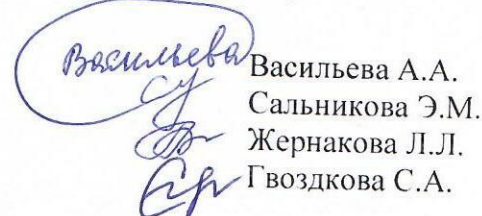 Васильева Васильева А.А.
Сальникова Э.М.
Жернакова Л.Л.
Гвоздкова С.А.